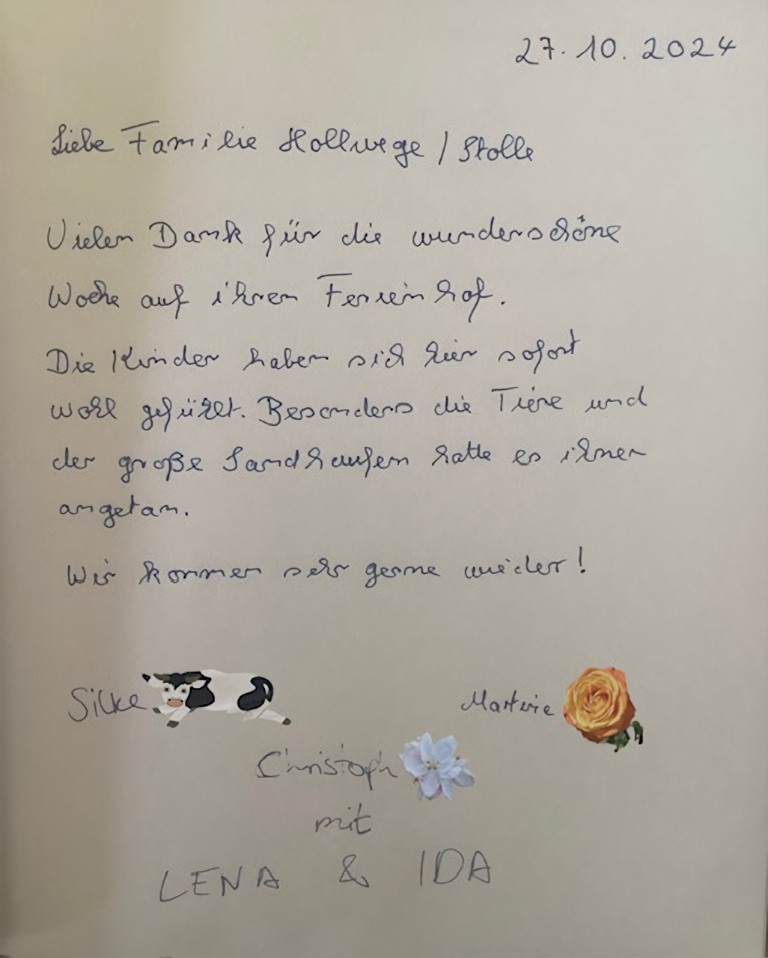 27.10.2024
Liebe Familie Hollwege / Stolle
Vielen Dank für die wunderschöne
Woche auf ihren Ferienhof.
Die Kinder haben sich hier sofort
wohl gefühlt. Besonders die Tiere und
der große Sandhaufen hatte es ihnen
angetan.
Wir kommen sehr gerne wieder!
Silke
Christoph
mit
LENA & IDA